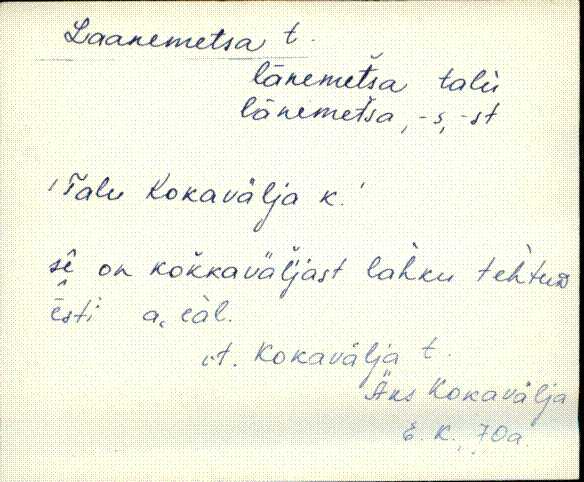 Laanemetsa t.
lānemet̆sa talu
lānemet̆sa, -s, -st
'Talu Kokavälja k.'
sē on kok̆kaväl̆jast lah̀ku teh̀tuD
ēsti a, eàl.
vt. Kokavälja t.
Äks Kokavälja
E. K., 70a.